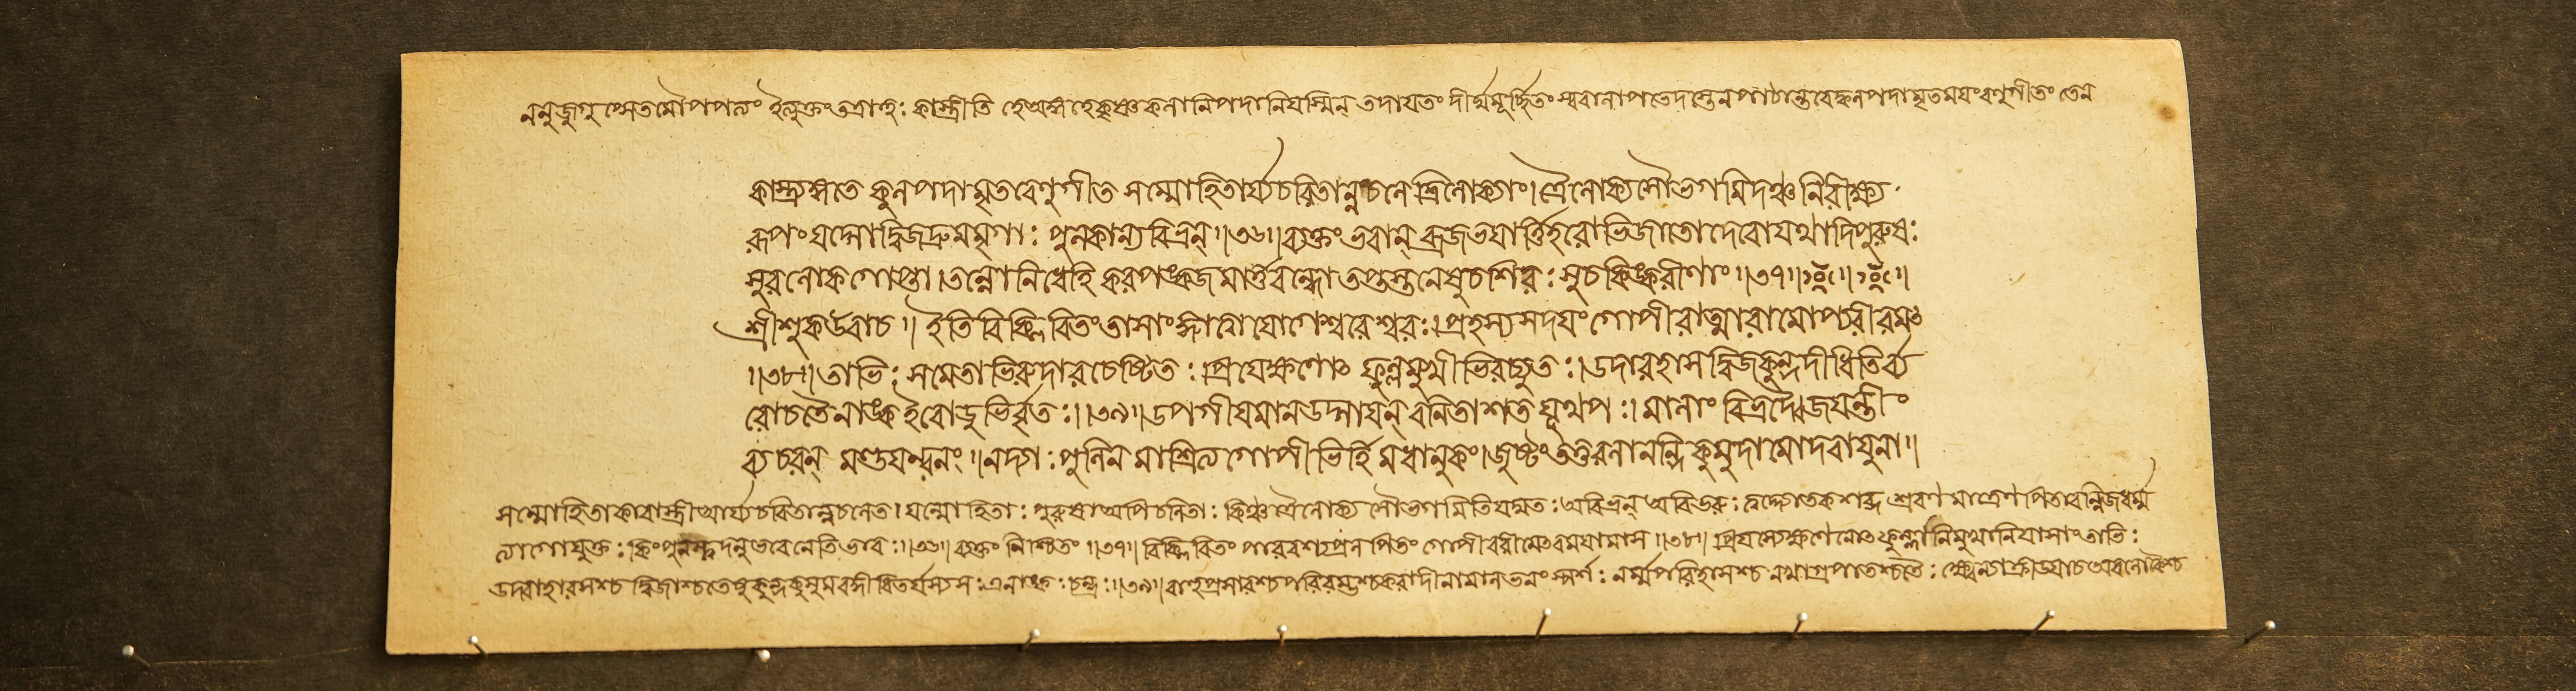 ননুজুগুপ্সেতমৌপপত্যং ইত্যুক্তংতত্রাহুঃ কাস্ত্রীতি হেঅঙ্গহেকৃষ্ণ কলানিপদানিযস্মিন্ তদাযতং দীর্ঘমূর্চ্ছিতং স্বরালাপভেদস্তেন পাঠান্তরেকলপদামৃতময়ংবেণুগীতং তেন
কাস্ত্র্যঙ্গতে কলপদামৃতবেণুগীত সম্মোহিতার্য্যচরিতান্নচলেত্ত্রিলোক্যাং। ত্রৈলোক্যসৌভগমিদঞ্চনিরীক্ষ্য
রূপং যদ্গোদ্বিজদ্রুমমৃগাঃ পুলকান্যবিভ্রন্॥৩৬॥ব্যক্তং ভবান্ ব্রজভযার্ত্তিহরোভিজাতোদেবোযথাদিপুরুষঃ
সুরলোকগোপ্তা।তন্নোনিধেহি করপঙ্কজমার্ত্তবন্ধো তপ্তস্তনেষুচশিরঃসুচকিঙ্করীণাং॥৩৭॥
শ্রীশুকউবাচ॥ ইতিবিক্লবিতংতাসাংশ্রুত্বাযোগেশ্বরেশ্বরঃ।প্রহস্যসদযংগোপীরাত্মারামোপ্যরীরমৎ
॥৩৮॥তাভিঃ সমেতাভিরুদারচেষ্টিতঃ প্রিযেক্ষণোৎফুল্লমুখীভিরচ্যুতঃ।উদারহাসদ্বিজকুন্দদীধিতির্ব্য
রোচতৈনাঙ্কইবোডুভির্বৃতঃ॥৩৯॥উপগীযমানউদ্গাযন্ বনিতাশতযূথপঃ। মালাং বিভ্রদ্বৈজযন্তীং
ব্যচরন্ মণ্ডযন্বনং॥নদ্যাঃ পুলিনমাশ্রিত্যগোপীভির্হিমবালুকং।জুষ্টংতত্তরলানন্দি কুমুদামোদবাযুনা॥
সম্মোহিতাকাবাস্ত্রীআর্য্যচরিতান্নচলেত।যন্মোহিতাঃ পুরুষাঅপিচলিতাঃ কিঞ্চত্রৈলোক্যসৌভগমিতিযদ্যতঃ অবিভ্রন্ অবিভরুঃ ত্বদ্দ্যোতকশব্দশ্রবণমাত্রেণাপিতাবন্নিজধর্ম্ম
ত্যাগোযুক্তঃ কিংপুনস্ত্বদনুভবেনেতিভাবঃ॥৩৬॥ব্যক্তং নিশ্চিতং॥৩৭॥ বিক্লবিতং পারবশ্যপ্রলপিতং গোপীররীরমৎরমযামাস॥৩৮॥ প্রিযস্যেক্ষণেনোৎফুল্লানিমুখানিযাসাংতাভিঃ
উদারহাসশ্চ দ্বিজাশ্চতেষুকুন্দকুসুমবদ্দীধিতির্যস্যসঃএনাঙ্কঃচন্দ্রঃ॥৩৯॥বাহুপ্রসারশ্চপরিরম্ভশ্চকরাদীনামালভনং স্পর্শঃ নর্ম্মপরিহাসশ্চ নখাগ্রপাতশ্চতৈঃ ক্ষ্বেল্যাক্রীডযাচঅবলোকৈশ্চ